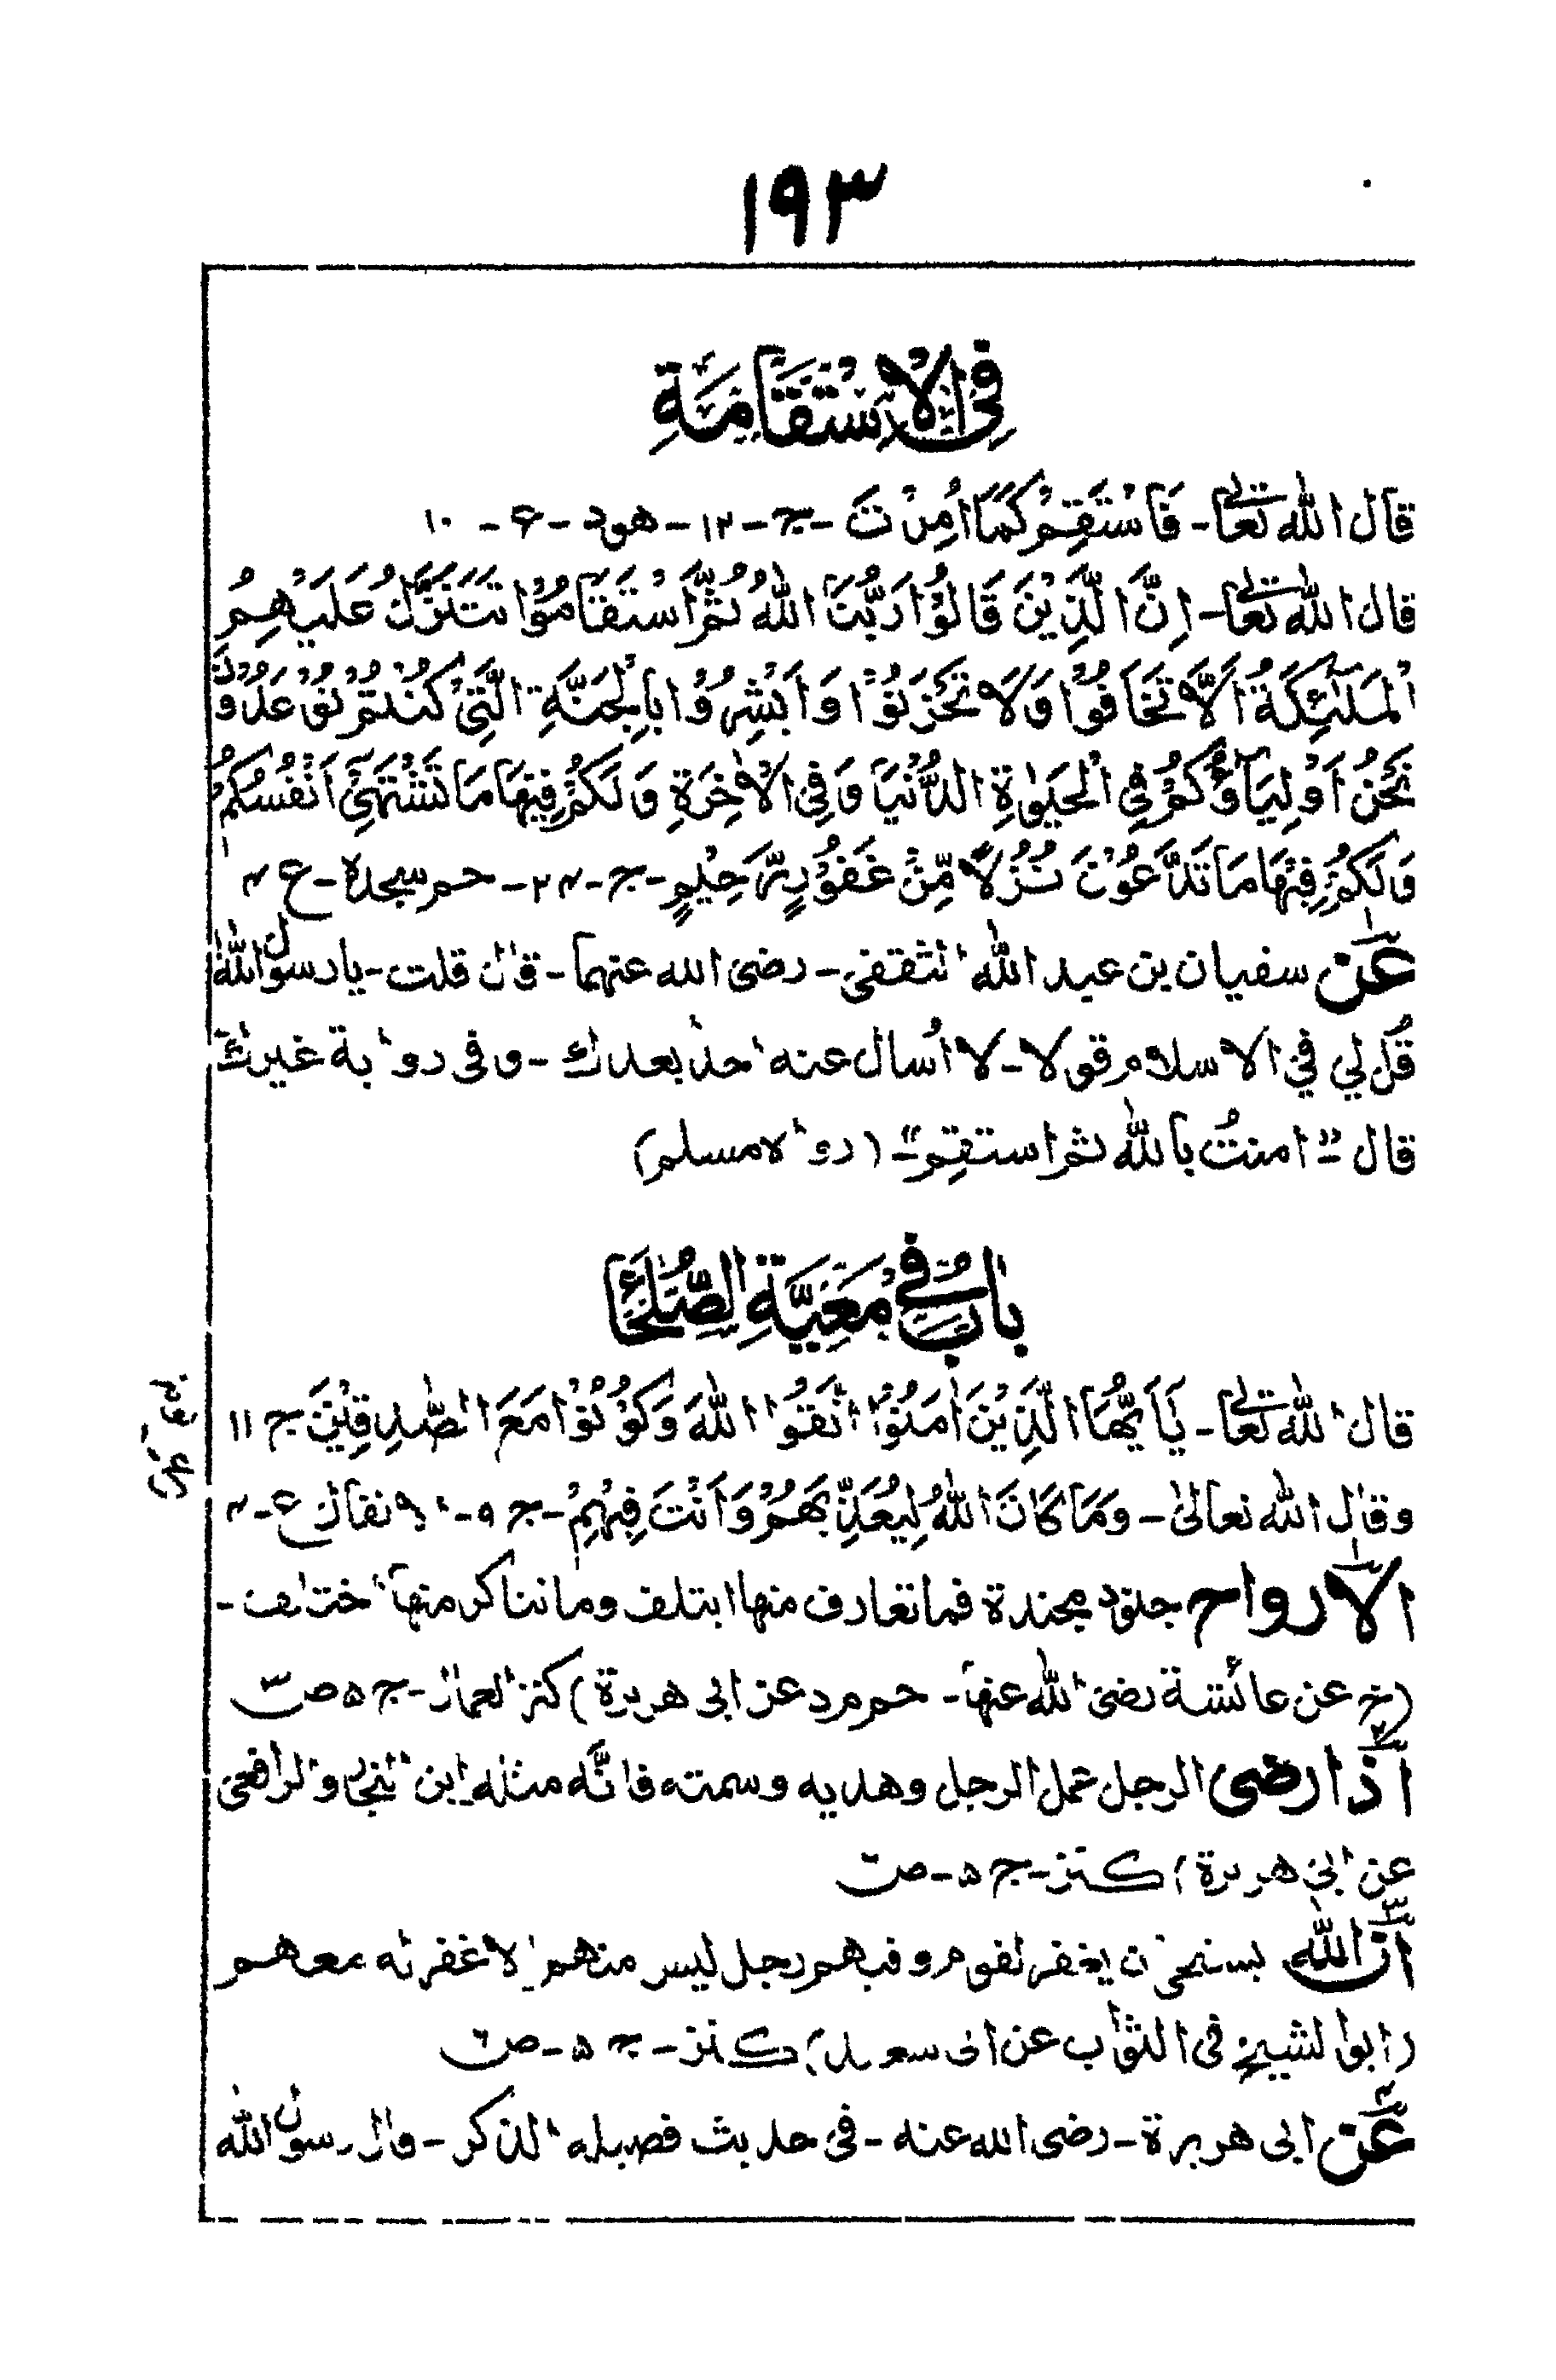 ١٩٣
فِي الْاِسْتَقَامَةِ
قال الله تعالى - فَاسْتَقِمْ كَمَا اُمِرْتَ - ج - ١٢ - هود - ع - ١٠
قال الله تعالى - اِنَّ الَّذِيْنَ قَالُوْا رَبُّنَا اللّٰهُ ثُمَّ اسْتَقَامُوْا تَتَنَزَّلُ عَلَيْهِمُ
الْمَلٰٓئِكَةُ اَلَّا تَخَافُوْا وَلَا تَحْزَنُوْا وَاَبْشِرُوْا بِالْجَنَّةِ الَّتِيْ كُنْتُمْ تُوْعَدُوْنَ
نَحْنُ اَوْلِيَآؤُكُمْ فِي الْحَيٰوةِ الدُّنْيَا وَفِي الْاٰخِرَةِ وَلَكُمْ فِيْهَا مَا تَشْتَهِيْٓ اَنْفُسُكُمْ
وَلَكُمْ فِيْهَا مَا تَدَّعُوْنَ نُزُلًا مِّنْ غَفُوْرٍ رَّحِيْمٍ - ج - ٢٤ - حم سجدة - ع ٤
١
عن سفيان بن عبد الله الثقفي - رضى الله عنهما - قال قلت - يا رسول الله
قُل لي في الاسلام قولا - لا اُسال عنه احدا بعدك - وفى رواية غيرك
قال " امنتُ بالله ثم استقِم " (رواه مسلم)
بابٌ في مَعِيَّةِ الصُّلَحَآءِ
قال الله تعالى - يٰٓاَيُّهَا الَّذِيْنَ اٰمَنُوا اتَّقُوا اللّٰهَ وَكُوْنُوْا مَعَ الصّٰدِقِيْنَ ج ١١
وقال الله تعالىٰ - وَمَا كَانَ اللّٰهُ لِيُعَذِّبَهُمْ وَاَنْتَ فِيْهِمْ - ج ٩ - الانفال ع - ٤
١
الارواح جنود مجندة فما تعارف منها ايتلف وما تناكر منها اختلف -
(خ عن عائشة رضى الله عنها - حم م د عن ابى هريرة) كنز العمال - ج ٥ ص ٣
٢
اذا رضى الرجل عمل الرجل وهديه وسمته فانّه مثله ابن النجار والرافعى
عن ابى هريرة) كنز - ج ٥ - ص
٣
ان الله يستحى ان يغفر لقوم وفيهم رجل ليس منهم الا غفر له معهم
(ابوا لشيخ فى الثواب عن ابى سعيد) كنز - ج ٥ - ص ٦
٤
عن ابى هريرة - رضى الله عنه - فى حديث فضيلة الذكر - قال رسول الله